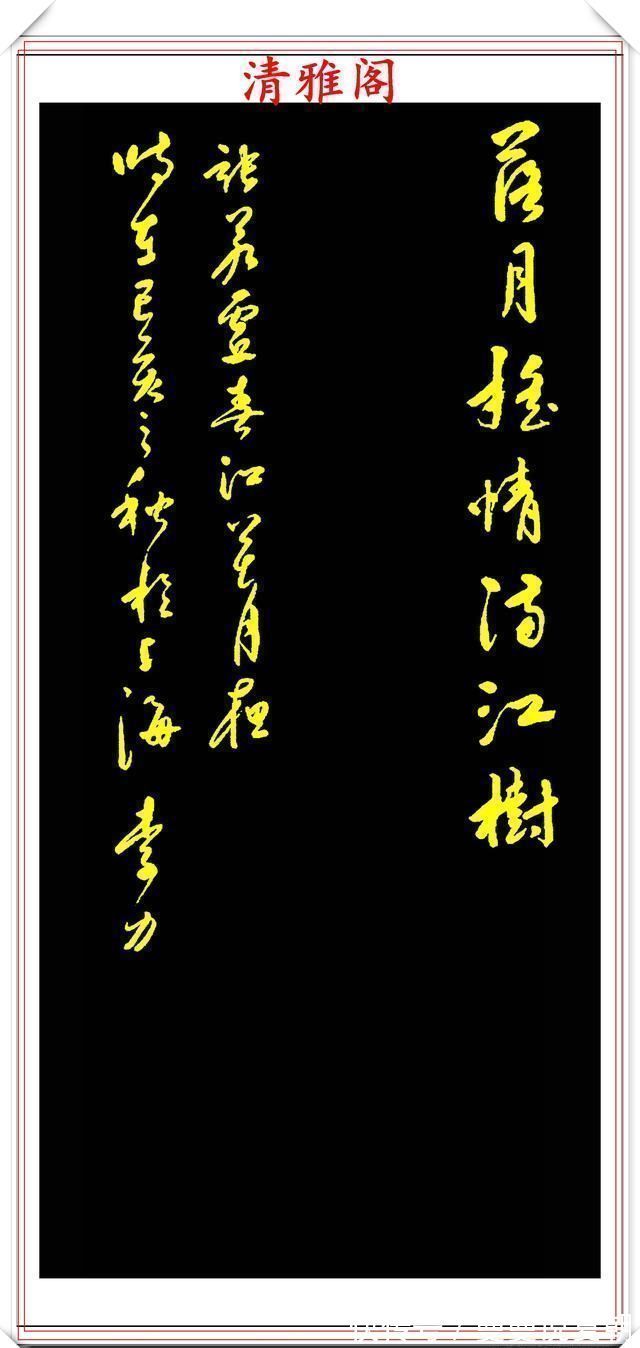 清雅阁
落月摇情满江树
张若虚春江花月夜
时在己亥之秋于上海 李力